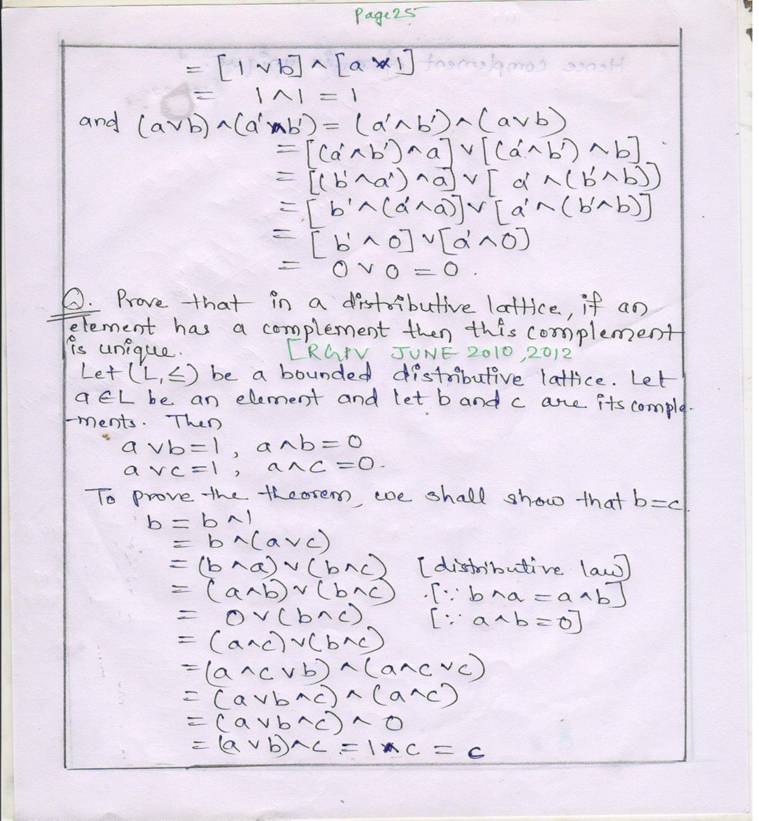 Page 25
= [1 ∨ b] ∧ [a ∨ 1]
= 1 ∧ 1 = 1
and (a∨b) ∧ (a'∧b') = (a'∧b') ∧ (a∨b)
= [(a'∧b') ∧ a] ∨ [(a'∧b') ∧ b]
= [(b'∧a') ∧ a] ∨ [a' ∧ (b'∧b)]
= [b' ∧ (a'∧a)] ∨ [a' ∧ (b'∧b)]
= [b' ∧ 0] ∨ [a' ∧ 0]
= 0 ∨ 0 = 0.
Q. Prove that in a distributive lattice, if an
element has a complement then this complement
is unique. [RGPV JUNE 2010, 2012
Let (L, ≤) be a bounded distributive lattice. Let
a ∈ L be an element and let b and c are its comple-
-ments. Then
a ∨ b = 1, a ∧ b = 0
a ∨ c = 1, a ∧ c = 0.
To prove the theorem, we shall show that b = c
b = b ∧ 1
= b ∧ (a ∨ c)
= (b ∧ a) ∨ (b ∧ c) [distributive law]
= (a ∧ b) ∨ (b ∧ c) [∵ b ∧ a = a ∧ b]
= 0 ∨ (b ∧ c) [∵ a ∧ b = 0]
= (a ∧ c) ∨ (b ∧ c)
= (a ∧ c ∨ b) ∧ (a ∧ c ∨ c)
= (a ∨ b ∧ c) ∧ (a ∧ c)
= (a ∨ b ∧ c) ∧ 0
= (a ∨ b) ∧ c = 1 ∧ c = c